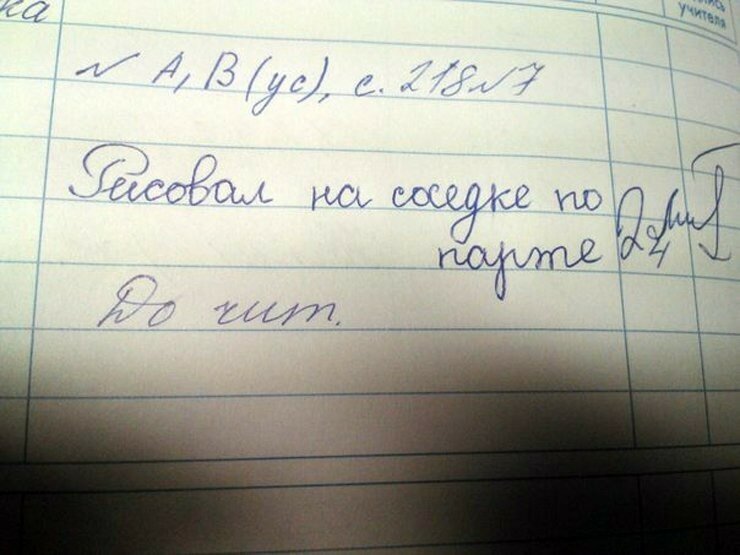 ка
учителя
№ А, В (ус), с. 218 №7
Рисовал на соседке по
парте
2
До чит.